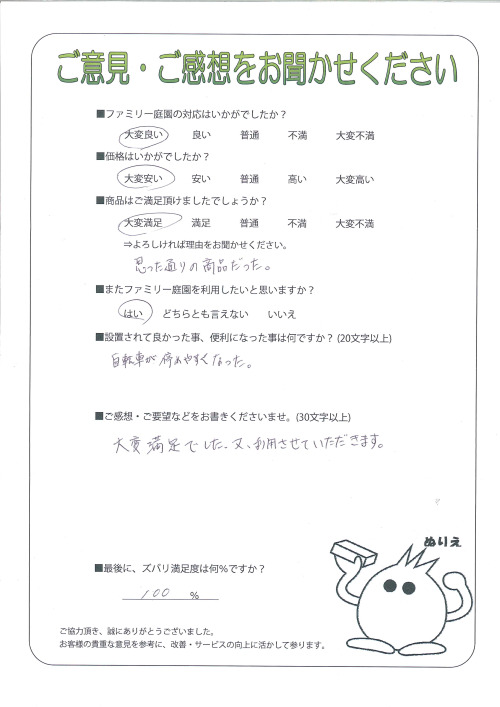 ご意見・ご感想をお聞かせください
■ファミリー庭園の対応はいかがでしたか？
大変良い 良い 普通 不満 大変不満
■価格はいかがでしたか？
大変安い 安い 普通 高い 大変高い
■商品はご満足頂けましたでしょうか？
大変満足 満足 普通 不満 大変不満
⇒よろしければ理由をお聞かせください。
思った通りの商品だった。
■またファミリー庭園を利用したいと思いますか？
はい どちらとも言えない いいえ
■設置されて良かった事、便利になった事は何ですか？(20文字以上)
自転車が停めやすくなった。
■ご感想・ご要望などをお書きくださいませ。(30文字以上)
大変満足でした、又、利用させていただきます。
ぬりえ
■最後に、ズバリ満足度は何％ですか？
100 %
ご協力頂き、誠にありがとうございました。
お客様の貴重な意見を参考に、改善・サービスの向上に活かして参ります。